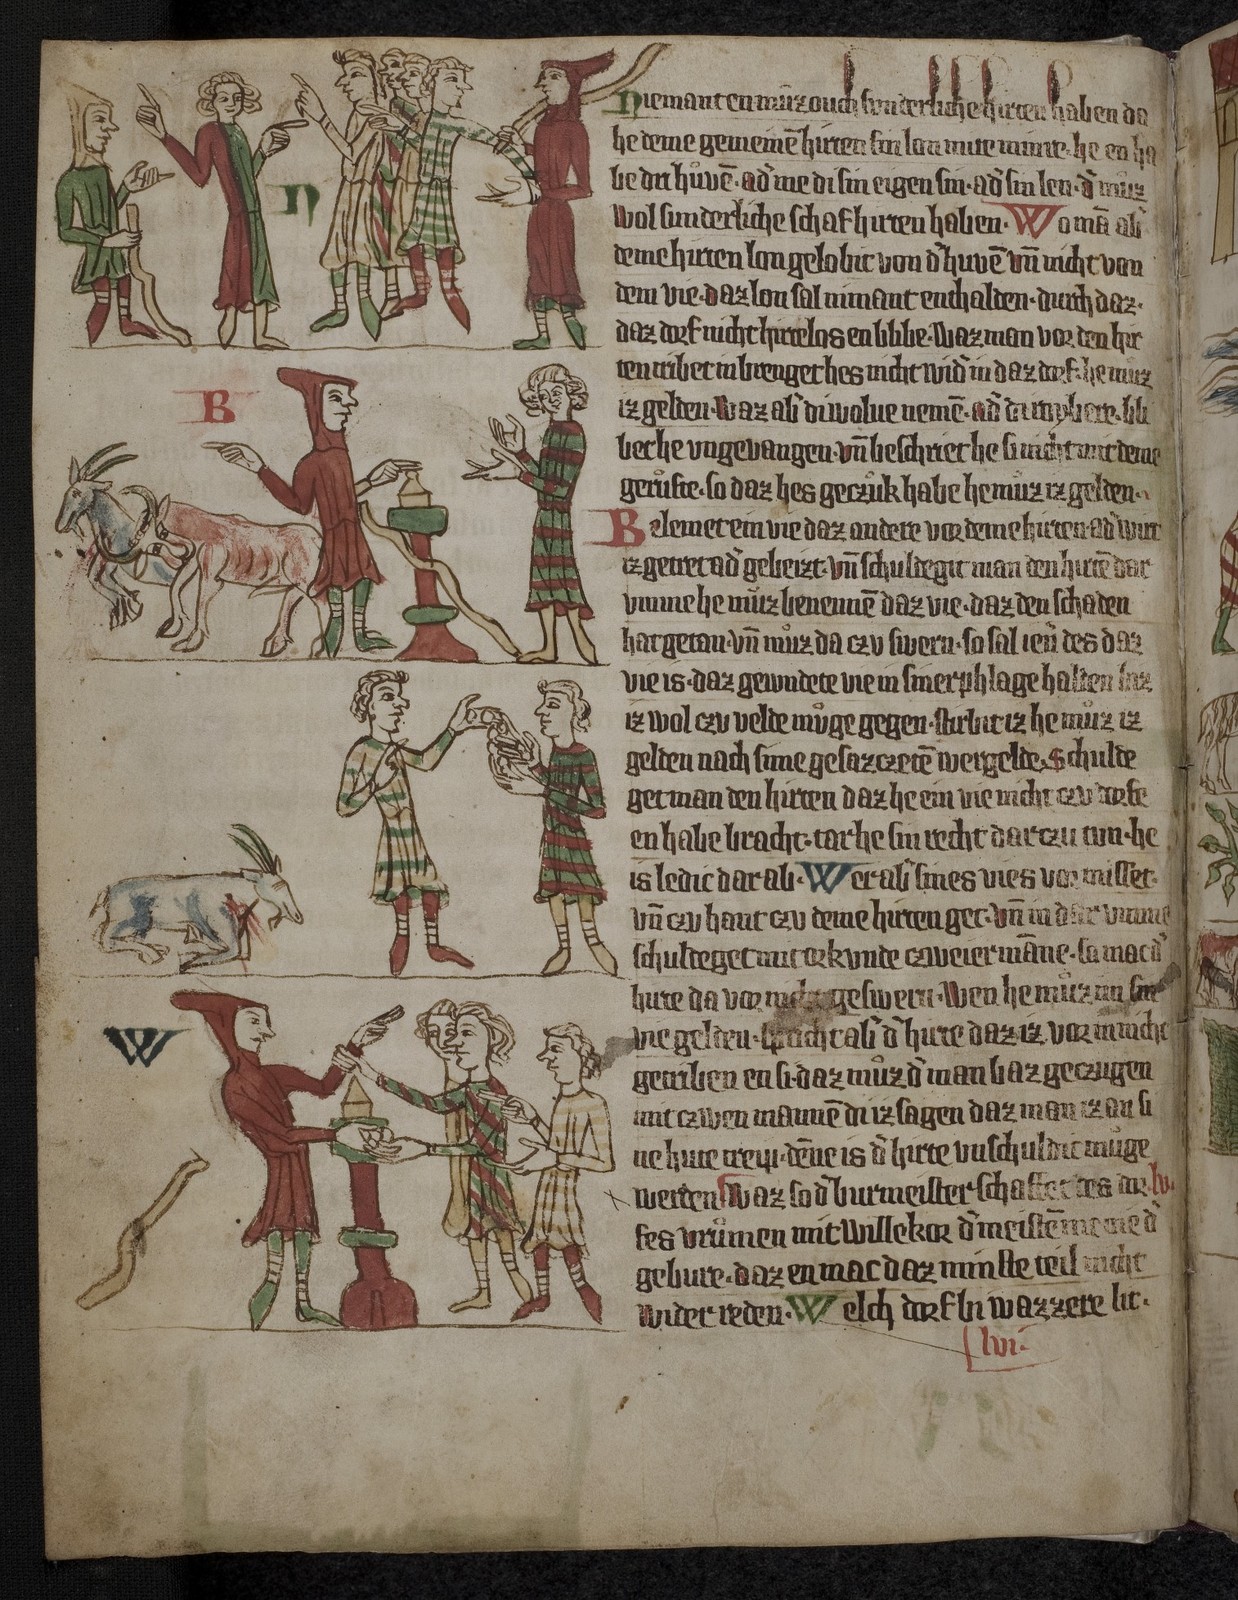 N
B
W
Niemant en muͤz ouch sunderliche hirten haben da
he deme gemeinē hirten sin lon mite minre. he en ha
be dri huͦvē. ad' me di sin eigen sin. ad' sin len. d' muͦz
wol sunderliche schafhirten haben. Wo mā ab'
deme hirten lon gelobit von d' huvē vn̄ nicht von
dem vie. daz lon sal nimant enthalden. durch daz.
daz dorf nicht hirtelos en blibe. Waz man vor den hir
ten tribet in brenget hes nicht wid' in daz dorf. he muͦz
iz gelden. Waz ab' di wolue nemē. ad' bli
bet he vngevangen. vn̄ beschriet he si nicht mit deme
geruͤfte. so daz hes geczuͤk habe he muͦz iz gelden.
Belemet ein vie daz andere vor deme hirten. ad' wirt
iz getret ad' gebeizt. vn̄ schuldegit man den hirtē dar
vmme he muͦz benennē daz vie. daz den schaden
hat getan. vn̄ muͦz da czv swern. so sal ien' des daz
vie is. daz gewndete vie in siner phlage halden baz
iz wol czv velde muͦge gegen. stirbit iz he muͦz iz
gelden nach sime gesazczetē wergelde. Schulde
get man den hirten daz he ein vie nicht czv dorfe
en habe bracht. tar he sin recht dar czu tun. he
is ledic dar ab. Wer ab' sines vies vormisset.
vn̄ czv hant czv deme hirten get. vn̄ in dar vmme
schuldeget mit orkvnde czweier māne. so mac d'
hirte da vor nicht geswern. Wen he muͦz im sin
vie gelden. Spricht ab' d' hirte daz iz vor in nicht
getriben en si. daz muͦz d' man baz geczugen
mit czwen mannē di iz sagen daz man iz an si
ne hute treip. dēne is d' hirte vnschuldic muͤge
werden. Waz so d' burmeister schaffet des dor
fes vruͦmen mit willekor d' meistē menie d'
gebure. daz en mac daz minste teil nicht
wider reden. Welch dorf bi wazzere lit.
lvi.